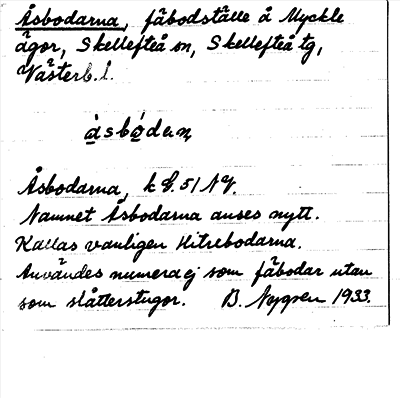 Åsbodarna, fäbodställe å Myckle
ägor, Skellefteå sn, Skellefteå tg,
Västerb. l.
åsbódan
Åsbodarna, k 51 NV.
Namnet Åsbodarna anses nytt.
Kallas vanligen Hitrebodarna.
Användes numera ej som fäbodar utan
som slåtterstugor. B. Nygren 1933.